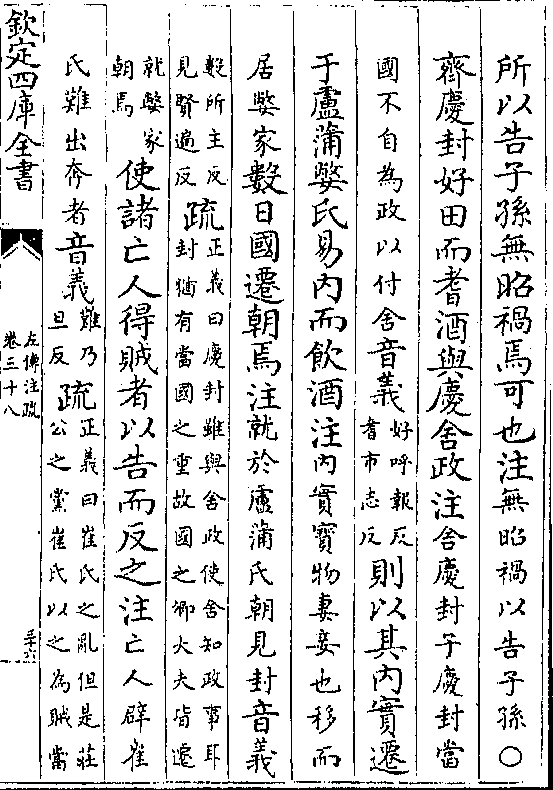 所以告子孫無昭禍焉可也注無昭禍以告子孫○
齊慶封好田而耆酒與慶舍政注舍慶封子慶封當
國不自為政以付舍音義好呼報反耆市志反則以其內實遷
于盧蒲嫳氏易內而飲酒注內實寶物妻妾也移而
居嫳家數日國遷朝焉注就於盧蒲氏朝見封音義
數所主反見賢遍反疏正義曰慶封雖與舍政使舍知政事耳封猶有當國之重故國之卿大夫皆遷
就嫳家朝焉使諸亡人得賊者以告而反之注亡人辟崔
氏難出奔者音義難乃旦反疏正義曰崔氏之亂但是莊公之黨崔氏以之為賊當
欽定四庫全書
左傳注疏
卷三十八
三十六